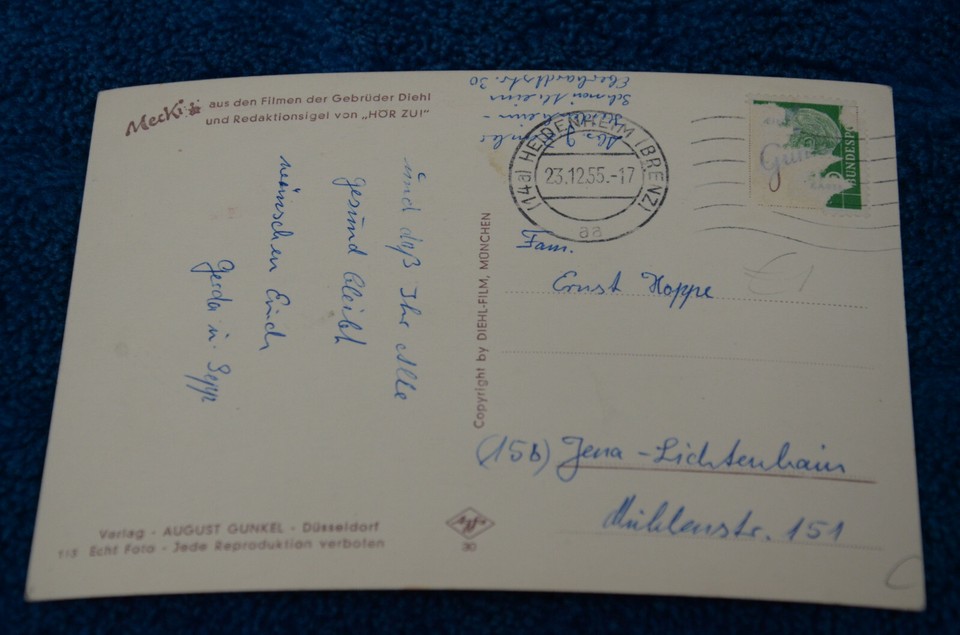 Mecki aus den Filmen der Gebrüder Diehl
und Redaktionsigel von „HÖR ZU!"
und daß Ihr Alle
gesund bleibt
wünschen Euch
Gerda u. Sepp
Verlag - AUGUST GUNKEL - Düsseldorf
115 Echt Foto - Jede Reproduktion verboten
Copyright by DIEHL-FILM, MÜNCHEN
Agfa
30
Eberhardtstr. 30
(14a) HEIDENHEIM (BRENZ)
23.12.55.-17
aa
BUNDESP
Fam.
Ernst Hoppe
(15b) Jena-Lichtenhain
Mühlenstr. 151